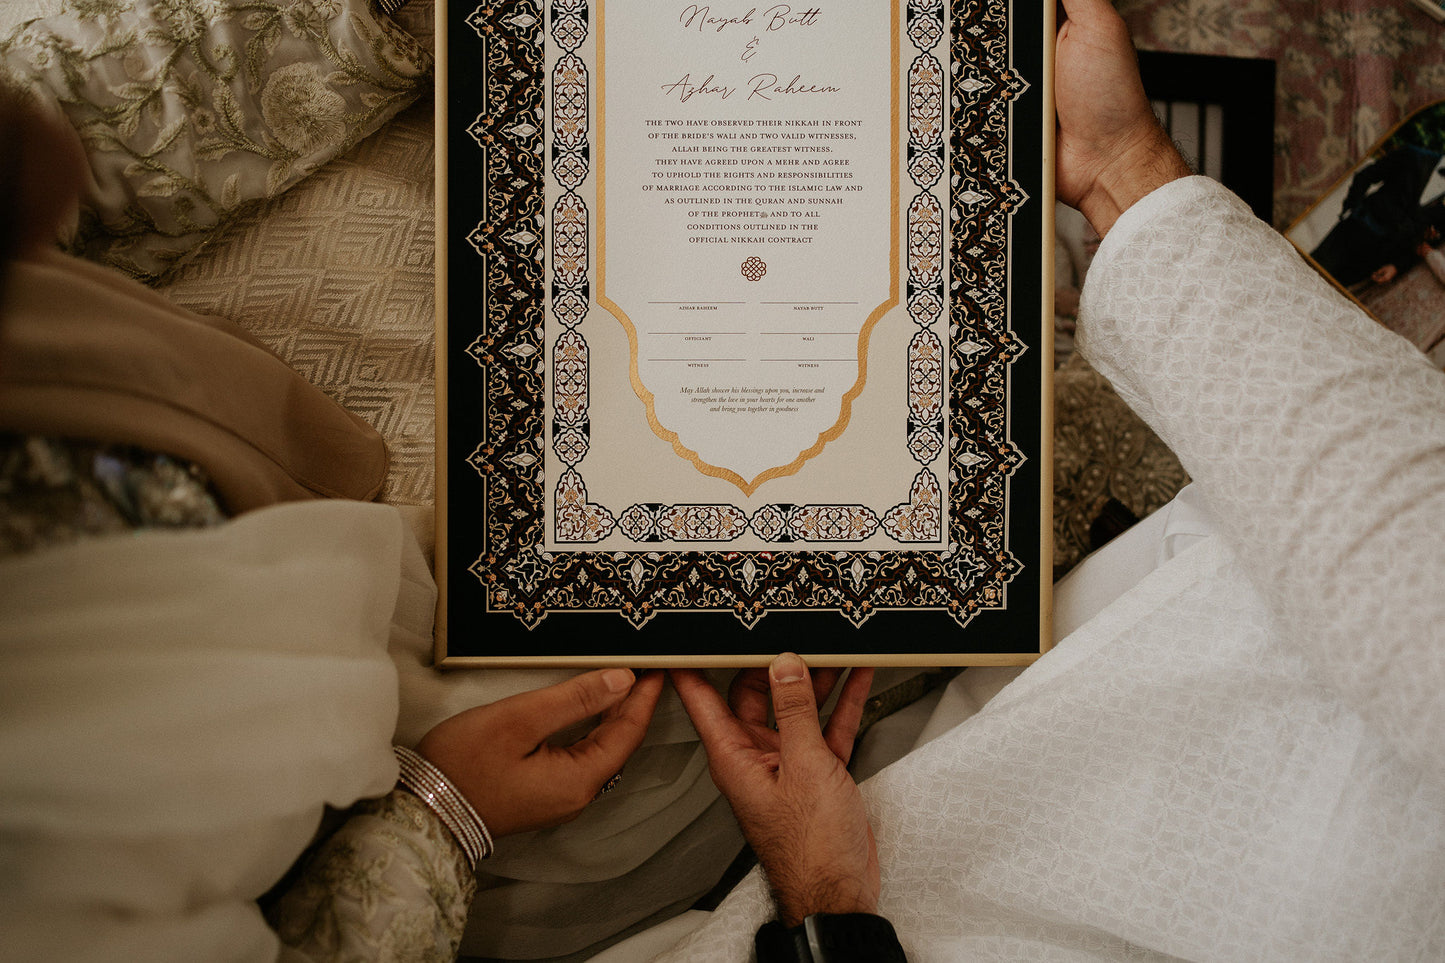 Nayab Butt
&
Azhar Raheem
THE TWO HAVE OBSERVED THEIR NIKKAH IN FRONT
OF THE BRIDE'S WALI AND TWO VALID WITNESSES,
ALLAH BEING THE GREATEST WITNESS.
THEY HAVE AGREED UPON A MEHR AND AGREE
TO UPHOLD THE RIGHTS AND RESPONSIBILITIES
OF MARRIAGE ACCORDING TO THE ISLAMIC LAW AND
AS OUTLINED IN THE QURAN AND SUNNAH
OF THE PROPHET ﷺ AND TO ALL
CONDITIONS OUTLINED IN THE
OFFICIAL NIKKAH CONTRACT
AZHAR RAHEEM NAYAB BUTT
OFFICIANT WALI
WITNESS WITNESS
May Allah shower his blessings upon you, increase and
strengthen the love in your hearts for one another
and bring you together in goodness